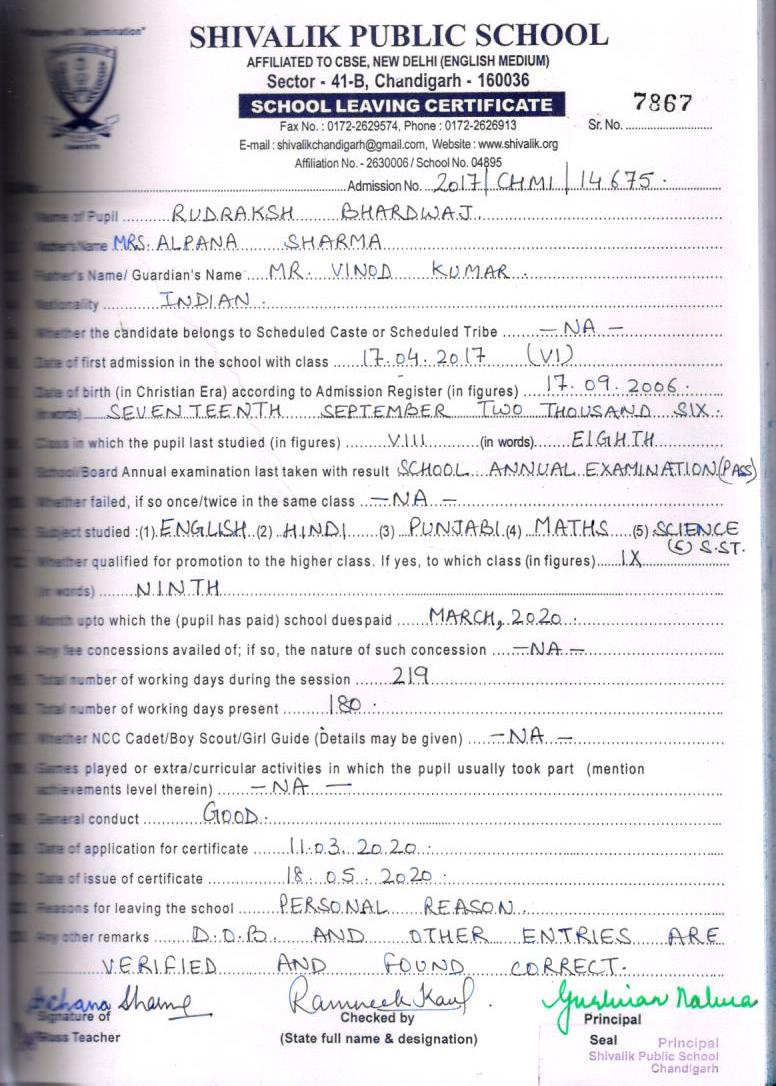 with Determination"
SHIVALIK PUBLIC SCHOOL
AFFILIATED TO CBSE, NEW DELHI (ENGLISH MEDIUM)
Sector - 41-B, Chandigarh - 160036
SCHOOL LEAVING CERTIFICATE
7867
Fax No. : 0172-2629574, Phone : 0172-2626913 Sr. No.
E-mail : shivalikchandigarh@gmail.com, Website : www.shivalik.org
Affiliation No. - 2630006 / School No. 04895
Admission No. 2017/CHMI/14675.
Name of Pupil RUDRAKSH BHARDWAJ
Mother's Name MRS. ALPANA SHARMA
Father's Name/ Guardian's Name MR. VINOD KUMAR.
Nationality INDIAN.
Whether the candidate belongs to Scheduled Caste or Scheduled Tribe - NA -
Date of first admission in the school with class 17.04.2017 (VI)
Date of birth (in Christian Era) according to Admission Register (in figures) 17.09.2006.
(in words) SEVENTEENTH SEPTEMBER TWO THOUSAND SIX.
Class in which the pupil last studied (in figures) VIII (in words) EIGHTH
School/Board Annual examination last taken with result SCHOOL ANNUAL EXAMINATION (PASS)
Whether failed, if so once/twice in the same class - NA -
Subject studied :(1) ENGLISH (2) HINDI (3) PUNJABI (4) MATHS (5) SCIENCE
(6) S.ST.
Whether qualified for promotion to the higher class. If yes, to which class (in figures) IX
(in words) NINTH
Month upto which the (pupil has paid) school duespaid MARCH, 2020.
Any fee concessions availed of; if so, the nature of such concession - NA -
Total number of working days during the session 219
Total number of working days present 180.
Whether NCC Cadet/Boy Scout/Girl Guide (Details may be given) - NA -
Games played or extra/curricular activities in which the pupil usually took part (mention
achievements level therein) - NA -
General conduct GOOD.
Date of application for certificate 11.03.2020.
Date of issue of certificate 18.05.2020.
Reasons for leaving the school PERSONAL REASON.
Any other remarks D.O.B. AND OTHER ENTRIES ARE
VERIFIED AND FOUND CORRECT.
Archana Sharma Ramneek Kaur.
Signature of Checked by Principal
Class Teacher (State full name & designation) Seal
Principal
Shivalik Public School
Chandigarh